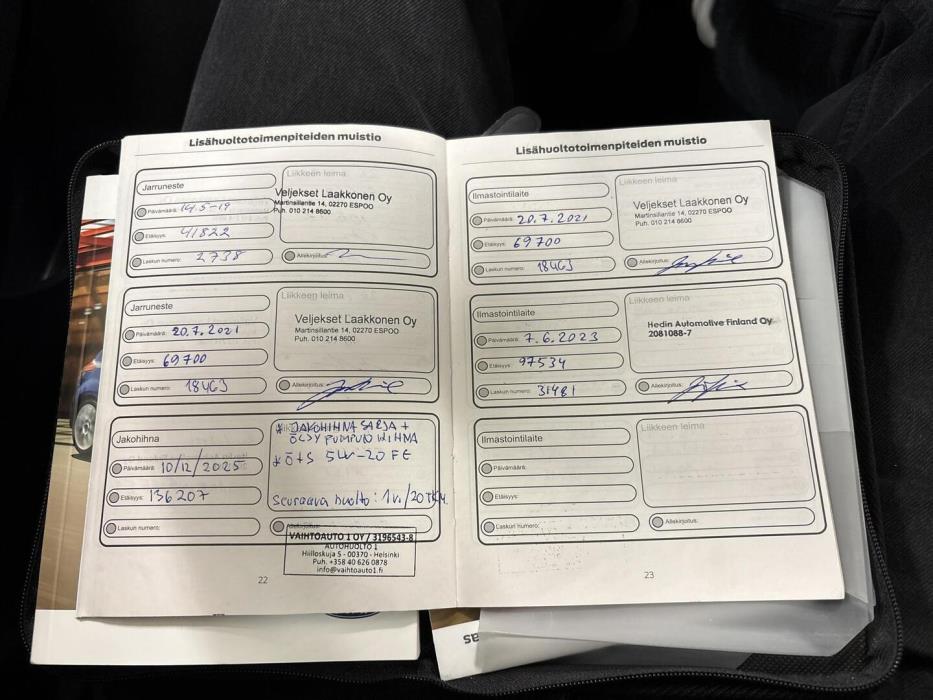 Lisähuoltotoimenpiteiden muistio
Jarruneste
Liikkeen leima
Veljekset Laakkonen Oy
Martinsillantie 14, 02270 ESPOO
Puh. 010 214 8600
Päivämäärä: 14.5-19
Etäisyys: 41822
Laskun numero: 2738
Allekirjoitus:
Jarruneste
Liikkeen leima
Veljekset Laakkonen Oy
Martinsillantie 14, 02270 ESPOO
Puh. 010 214 8600
Päivämäärä: 20.7.2021
Etäisyys: 69700
Laskun numero: 18463
Allekirjoitus:
Jakohihna
* JAKOHIHNA SARJA +
ÖLJYPUMPUN HIHNA
* Ö+S 5W-20 FE
Päivämäärä: 10/12/2025
Etäisyys: 136207
Seuraava huolto: 1v./20tkm.
Laskun numero:
Allekirjoitus:
VAIHTOAUTO 1 OY / 3196543-8
AUTOHUOLTO 1
Hiilloskuja 5 - 00370 - Helsinki
Puh. +358 40 626 0878
info@vaihtoauto1.fi
22
Lisähuoltotoimenpiteiden muistio
Ilmastointilaite
Liikkeen leima
Veljekset Laakkonen Oy
Martinsillantie 14, 02270 ESPOO
Puh. 010 214 8600
Päivämäärä: 20.7.2021
Etäisyys: 69700
Laskun numero: 18463
Allekirjoitus:
Ilmastointilaite
Liikkeen leima
Hedin Automotive Finland Oy
2081088-7
Päivämäärä: 7.6.2023
Etäisyys: 97534
Laskun numero: 31481
Allekirjoitus:
Ilmastointilaite
Liikkeen leima
Päivämäärä:
Etäisyys:
Laskun numero:
Allekirjoitus:
23